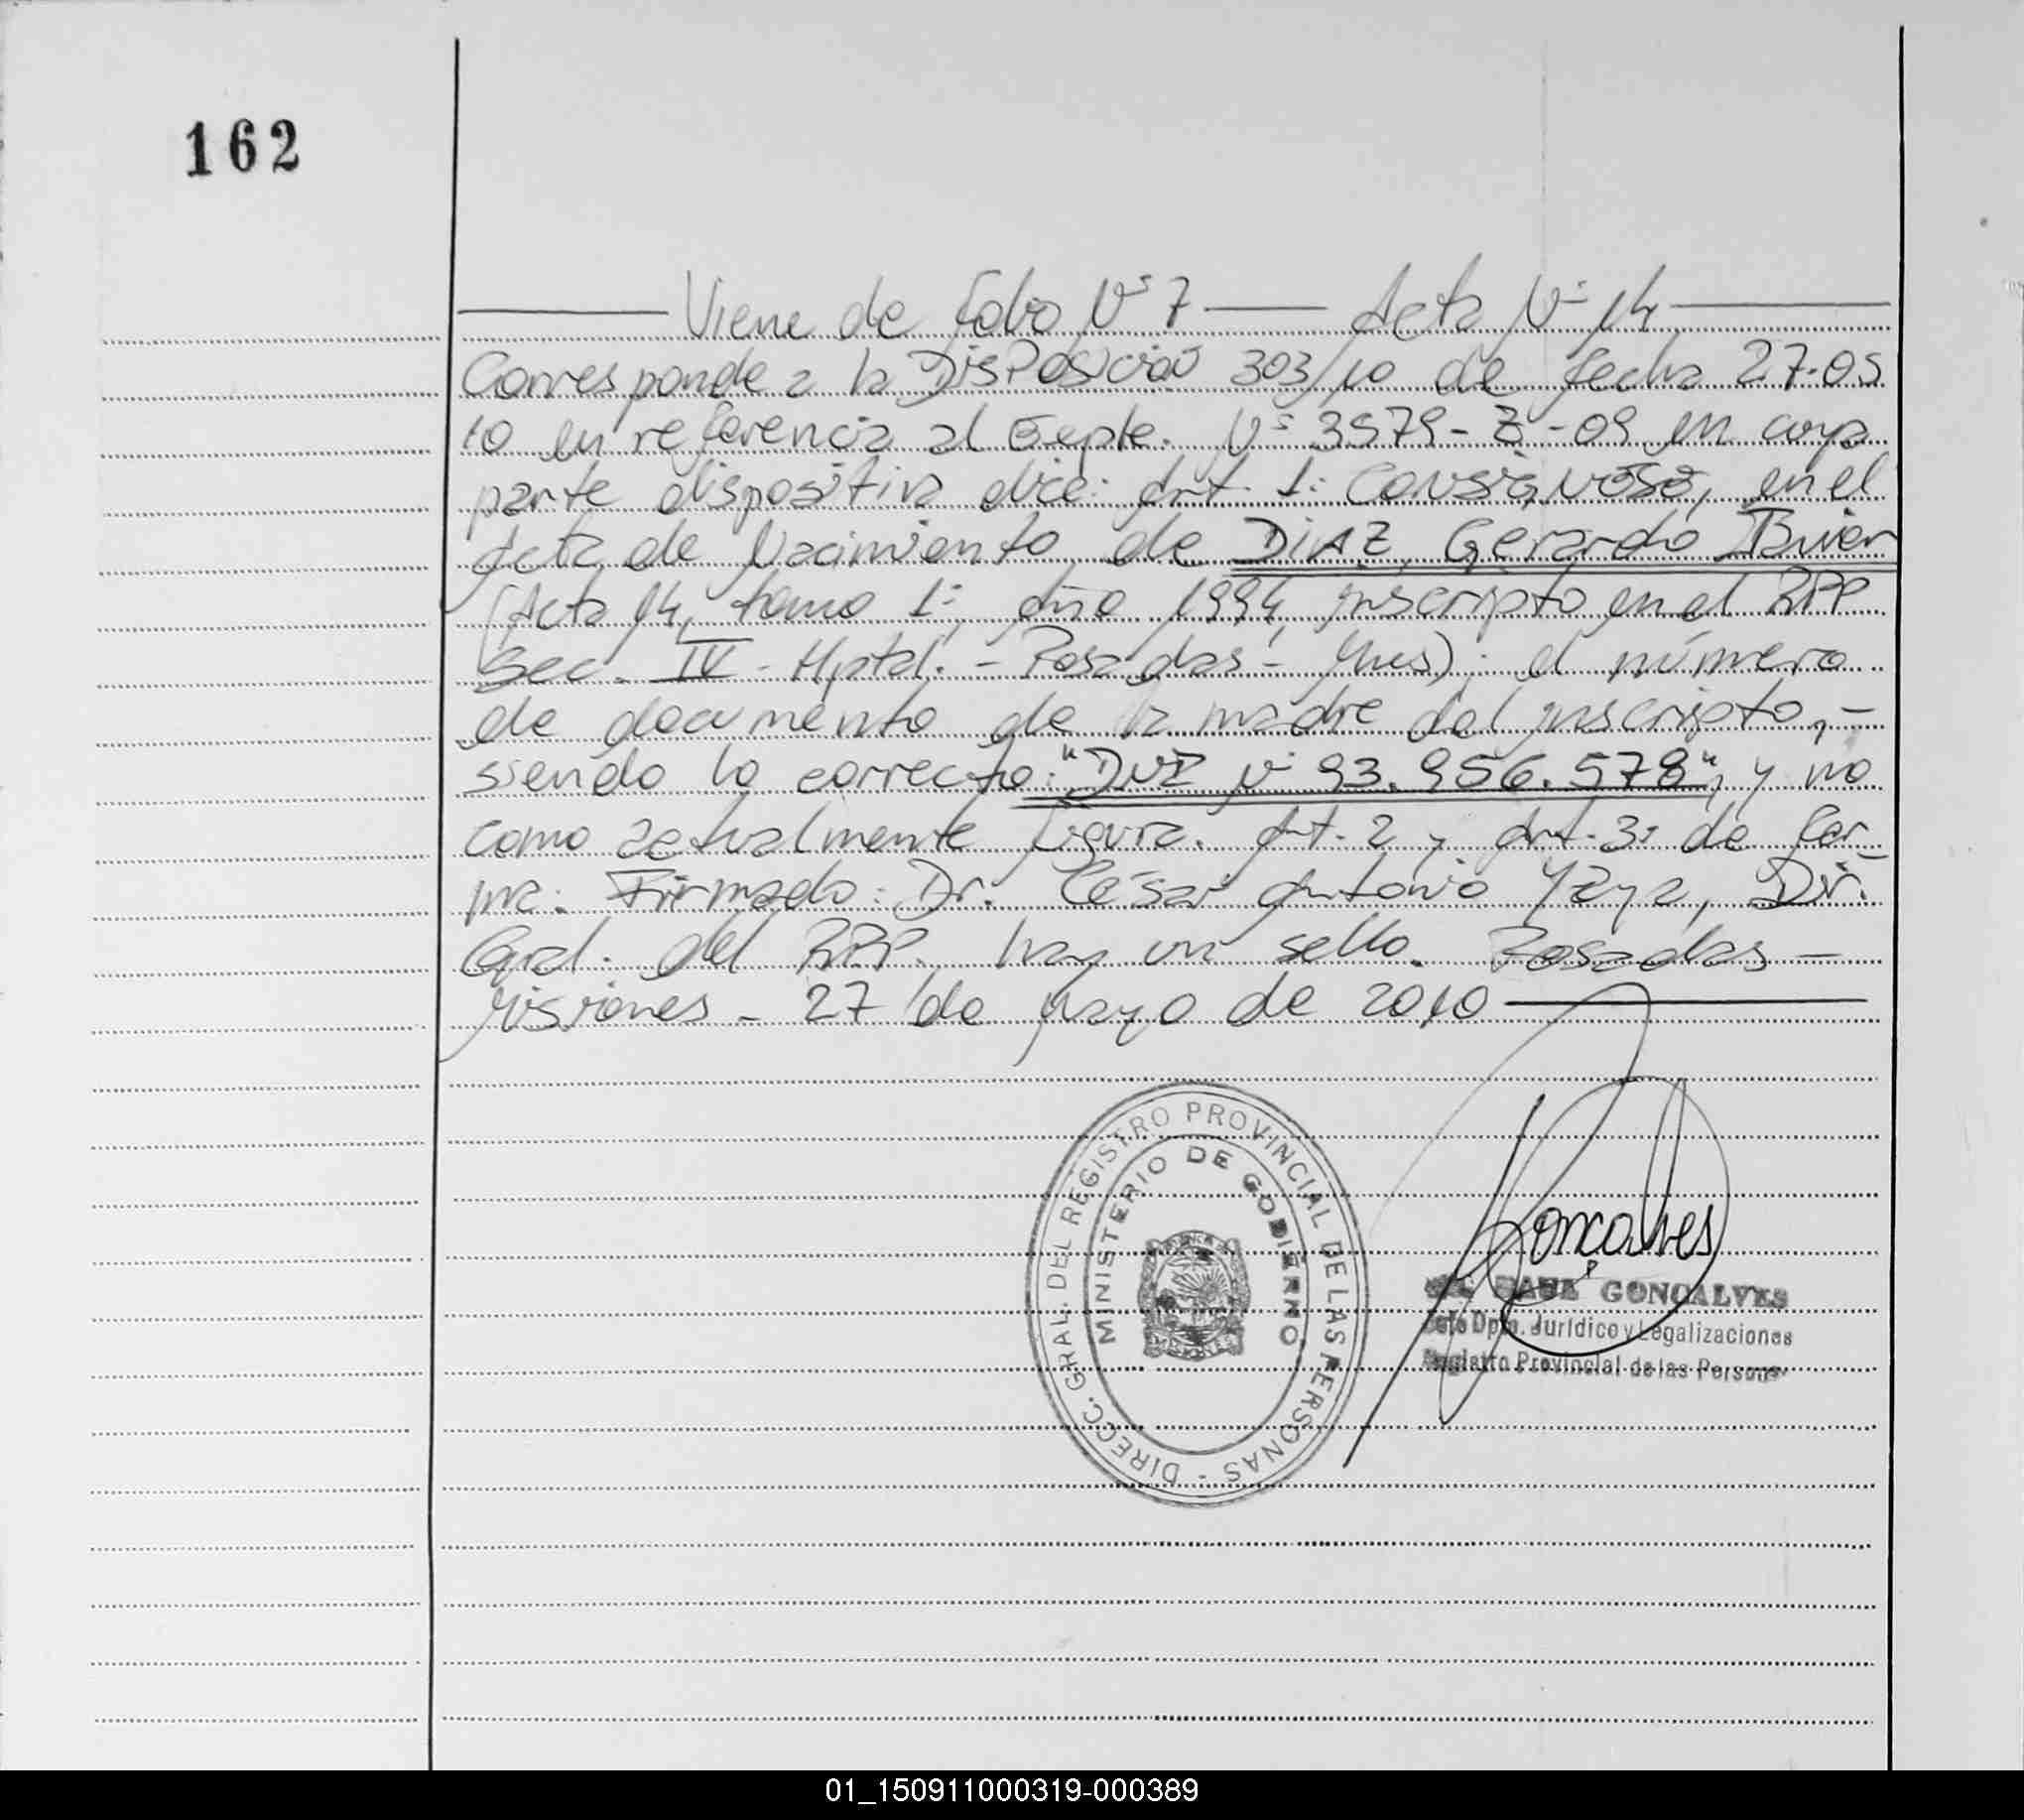 162
Viene de Folio Nº 7 Acta Nº 14
Corresponde a la Disposición 303/10 de fecha 27.05
10 en referencia al Expte. Nº 3579-Z-09 en cuya
parte dispositiva dice: Art. 1: Consígnese, en el
Acta de Nacimiento de DIAZ, Gerardo
(Acta 14, tomo 1º, año 1994, inscripto en el RPP
Sec. IV - Hptal. - Posadas - Mnes): el número
de documento de la madre del inscripto, -
siendo lo correcto: "DNI Nº 93.956.578", y no
como actualmente figura. Art. 2 y Art. 3: de for-
ma. Firmado: Dr. César Antonio Yaya, Dir.
Gral. del RPP. hay un sello. Posadas -
Misiones - 27 de Mayo de 2010
DIRECC. GRAL. DEL REGISTRO PROVINCIAL DE LAS PERSONAS -
MINISTERIO DE GOBIERNO
Gonçalves
GONCALVES
Jefe Dpto. Jurídico y Legalizaciones
Registro Provincial de las Personas
01_150911000319-000389